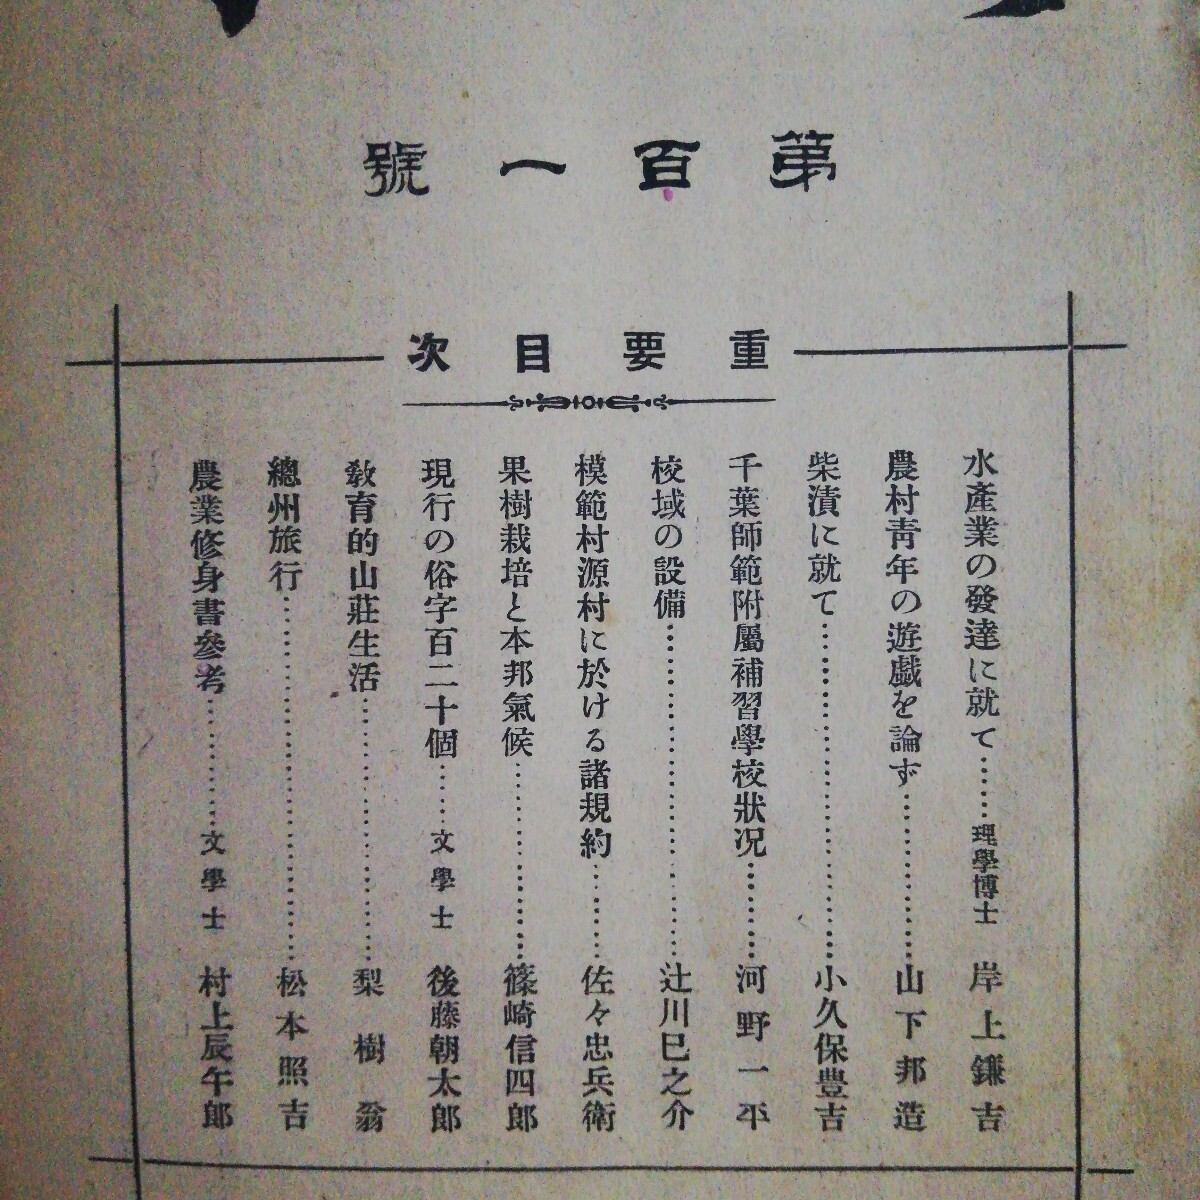 第百一號
重要目次
水產業の發達に就て……理學博士 岸上鎌吉
農村靑年の遊戱を論ず……………山下邦造
柴漬に就て……………………小久保豊吉
千葉師範附屬補習學校狀況………河野一平
校域の設備……………………辻川巳之介
模範村源村に於ける諸規約………佐々忠兵衛
果樹栽培と本邦氣候………………篠崎信四郎
現行の俗字百二十個……文學士 後藤朝太郎
敎育的山莊生活……………………梨樹翁
總州旅行…………………………松本照吉
農業修身書參考…………文學士 村上辰午郎